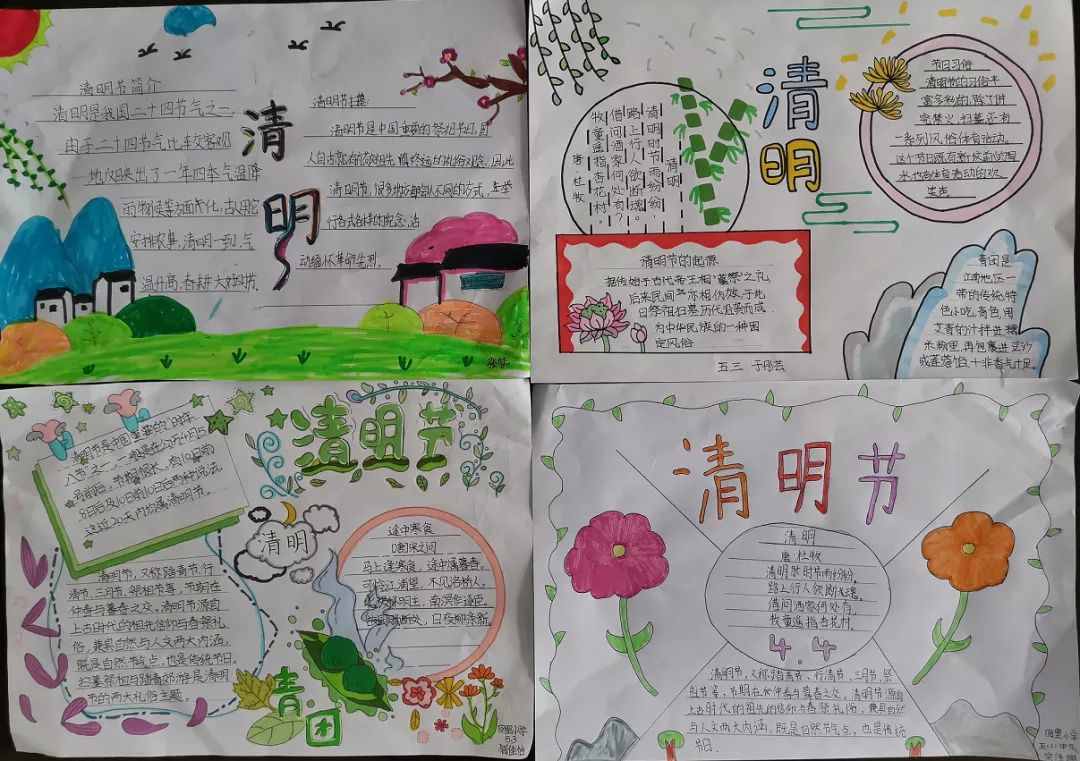 清明节简介
清明是我国二十四节气之一
由于二十四节气比较客观
地反映出了一年四季气温降
雨物候等方面变化,古人用它
安排农事,清明一到,气
温升高,春耕大好时
清
明
清明节主题:
清明节是中国重要的祭祀节日,
动缅怀革命先烈.
清明
清明
唐·杜牧
清明时节雨纷纷,
路上行人欲断魂。
借问酒家何处有?
牧童遥指杏花村。
节日习俗
清明节的习俗丰
富多彩的,除了讲
究禁火,扫墓,还有
一系列风俗体育活动.
清明节的起源
据传始于古代帝王相"墓祭"之礼,
后来民间亦相仿效,于此
日祭祖扫墓历代沿袭而成
为中华民族的一种固
定风俗
青团是
江南地区一
带的传统特
色小吃,青色,用
艾青的汁拌进糯
米粉里,再包裹进豆沙
或莲蓉馅,
五三
清明节
清明节是中国重要的"时年
八节"之一,一般是在公历4月5
号前后,节期很长,有10日前
8日后及10日前10日后两种说法
这近20天内均属清明节。
清明
清明节,又称踏青节、行
清节、三月节、祭祖节等,节期在
仲春与暮春之交。清明节源自
上古时代的祖先信仰与春祭礼
俗,兼具自然与人文两大内涵,
既是自然节气点,也是传统节日。
扫墓祭祖与踏青郊游是清明
节的两大礼俗主题。
途中寒食
唐 宋之问
马上逢寒食,途中属暮春。
可怜江浦望,不见洛桥人。
青
团
5.3
清明节
清明
唐 杜牧
清明时节雨纷纷,
路上行人欲断魂。
借问酒家何处有,
牧童遥指杏花村。
4.4
清明节,又称踏青节、行清节、三月节、祭
祖节等,节期在仲春与暮春之交。清明节源自
上古时代的祖先信仰与春祭礼俗,兼具自然
与人文两大内涵,既是自然节气点,也是传统
节日.